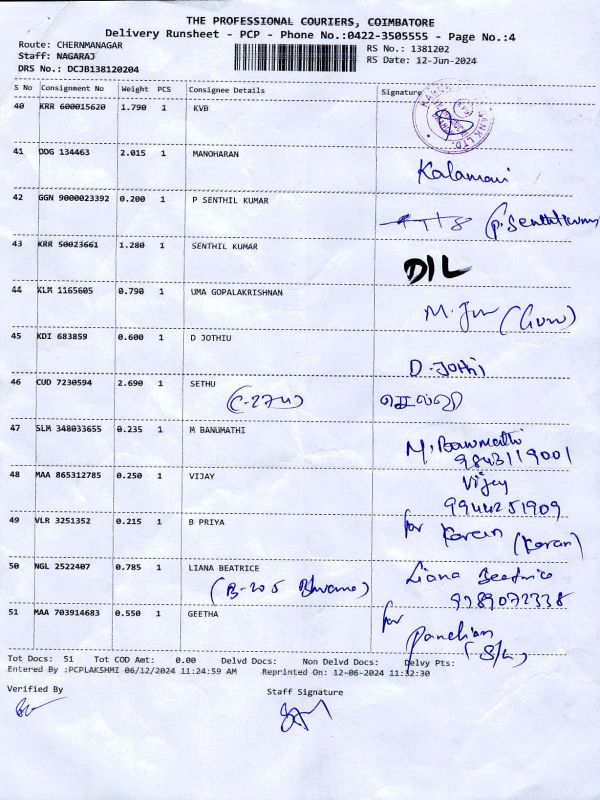 THE PROFESSIONAL COURIERS, COIMBATORE
Delivery Runsheet - PCP - Phone No.:0422-3505555 - Page No.:4
Route: CHERNMANAGAR
Staff: NAGARAJ
DRS No.: DCJB138120204
RS No.: 1381202
RS Date: 12-Jun-2024
S No Consignment No Weight PCS Consignee Details Signature
40 KRR 600015620 1.790 1 KVB
41 DDG 134463 2.015 1 MANOHARAN Kalamani
42 GGN 9000023392 0.200 1 P SENTHIL KUMAR (P. Senthilkumar
43 KRR 50023661 1.280 1 SENTHIL KUMAR DIL
44 KLM 1165605 0.790 1 UMA GOPALAKRISHNAN
45 KDI 683859 0.600 1 D JOTHIU D. Jothi
46 CUD 7230594 2.690 1 SETHU
47 SLM 348033655 0.235 1 M BANUMATHI M. Banumathi
9843119001
48 MAA 865312785 0.250 1 VIJAY Vijay
9944251909
49 VLR 3251352 0.215 1 B PRIYA for Karan (Karan)
50 NGL 2522407 0.785 1 LIANA BEATRICE Liana Beatrice
(B-205 9789072338
51 MAA 703914683 0.550 1 GEETHA for Pandian
Tot Docs: 51 Tot COD Amt: 0.00 Delvd Docs: Non Delvd Docs: Delvy Pts:
Entered By :PCPLAKSHMI 06/12/2024 11:24:59 AM Reprinted On: 12-06-2024 11:32:30
Verified By Staff Signature